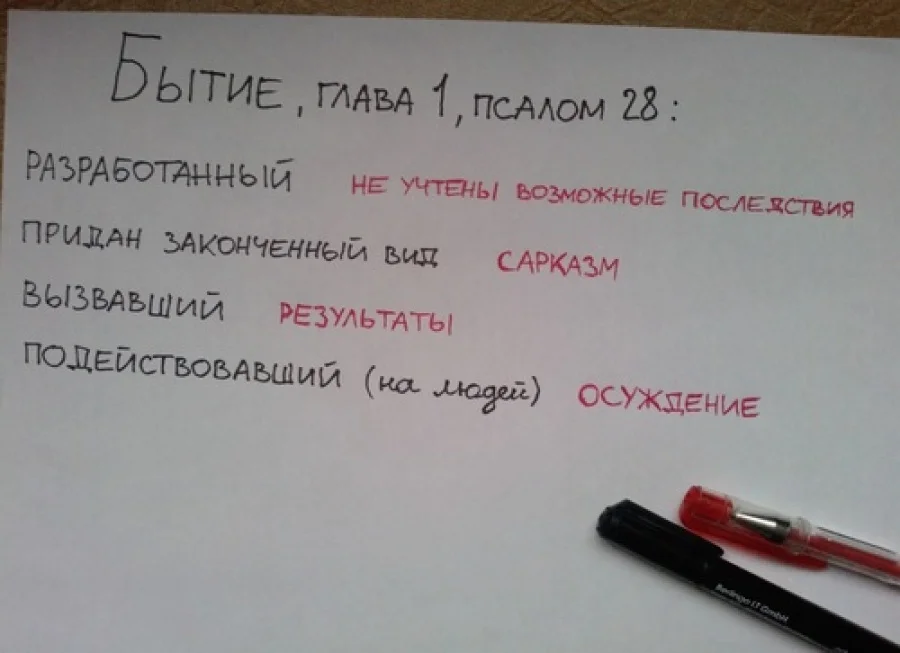 Бытие, глава 1, псалом 28:
РАЗРАБОТАННЫЙ НЕ УЧТЕНЫ ВОЗМОЖНЫЕ ПОСЛЕДСТВИЯ
ПРИДАН ЗАКОНЧЕННЫЙ ВИД САРКАЗМ
ВЫЗВАВШИЙ РЕЗУЛЬТАТЫ
ПОДЕЙСТВОВАВШИЙ (на людей) ОСУЖДЕНИЕ
Berlingo IT GmbH